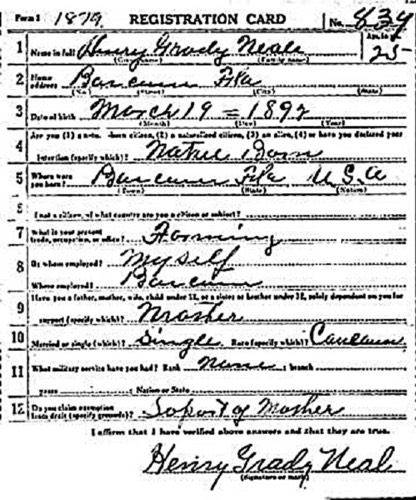 Form 1 1879 REGISTRATION CARD No. 839
1 Name in full Henry Grady Neal Age, in yrs.
(Given name) (Family name) 25
2 Home address Barcum Fla
(No.) (Street) (City) (State)
3 Date of birth March 19 = 1892
(Month) (Day) (Year)
4 Are you (1) a natural-born citizen, (2) a naturalized citizen, (3) an alien, (4) or have you declared your
intention (specify which)? Natrel Born
5 Where were you born? Barcum Fla U.S.A
(Town) (State) (Nation)
6 If not a citizen, of what country are you a citizen or subject?
7 What is your present trade, occupation, or office? Farming
8 By whom employed? Myself
Where employed? Barcum
9 Have you a father, mother, wife, child under 12, or a sister or brother under 12, solely dependent on you for
support (specify which)? Mother
10 Married or single (which)? Single Race (specify which)?
11 What military service have you had? Rank None ; branch
years ; Nation or State
12 Do you claim exemption from draft (specify grounds)? Soport of Mother
I affirm that I have verified above answers and that they are true.
Henry Grady Neal
(Signature or mark)